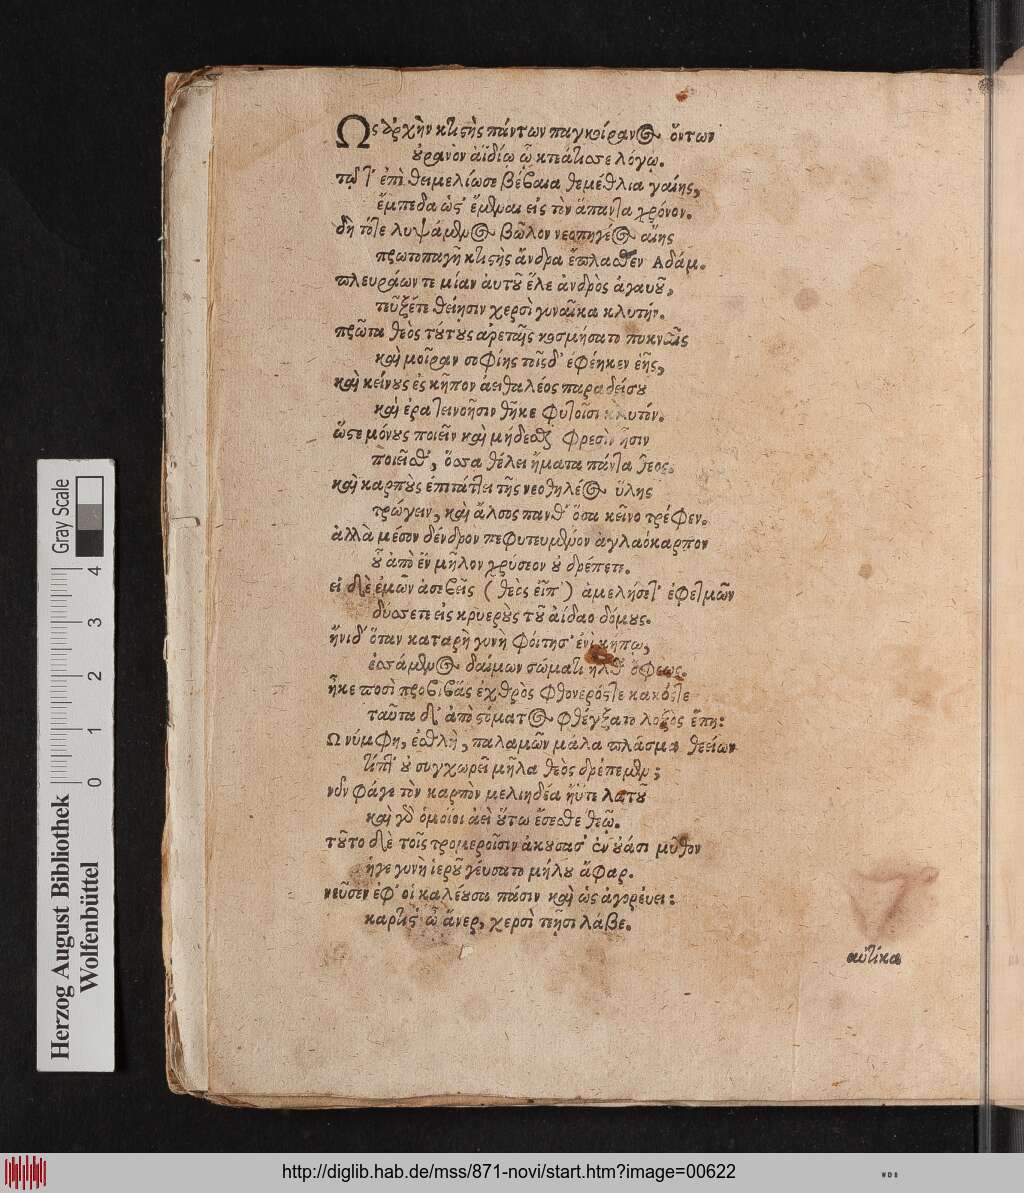 Ως ἀρχὴν κτιστὴς πάντων παγκοίρανος ὄντων
οὐρανὸν ἀϊδίῳ ᾧ κτεάτισσε λόγῳ.
τῷ τ' ἐπὶ θειμελίωσε βέβαια θεμέθλια γαίης,
ἔμπεδα ὡς ἔμεναι εἰς τὸν ἅπαντα χρόνον.
δὴ τότε λυψάμενος βῶλον νεοπηγέος αἴης
πρωτοπαγῆ κτιστὴς ἄνδρα ἔπλασθεν Αδάμ.
πλευράων τε μίαν αὐτοῦ ἕλε ἀνδρὸς ἀγαυοῦ,
τεῦξέτε θείῃσιν χερσὶ γυναῖκα κλυτήν.
πρῶτα θεὸς τούτους ἀρεταῖς κοσμήσατο πυκναῖς
καὶ μοῖραν σοφίης τοῖς δ' ἐφέηκεν ἑῆς,
καὶ κείνους ἐς κῆπον ἀειθαλέος παραδείσου
καὶ ἐρατεινοῆσιν θῆκε φυτοῖσι κλυτόν.
ὥστε μόνους ποιεῖν καὶ μήδεσθαι φρεσὶν ᾗσιν
ποιεῖσθ', ὅσσα θέλει ἤματα πάντα θεος.
καὶ καρποὺς ἐπιτάττει τῆς νεοθηλέος ὕλης
τρώγειν, καὶ ἄλσος πανθ' ὅσα κεῖνο τρέφεν.
ἀλλὰ μέσον δένδρον πεφυτευμένον ἀγλαόκαρπον
οὗ ἀπὸ ἓν μῆλον χρύσεον οὐ δρέπετε.
εἰ δὲ ἐμῶν ἀσεβεῖς (θεὸς εἶπ') ἀμελήσετ' ἐφετμῶν
δύσσετε εἰς κρυεροὺς τοῦ ἀίδαο δόμους.
ἤνιδ' ὅταν καταρὴ γυνὴ φοίτησ' ἐνὶ κήπῳ,
ἑσσάμενος δαίμων σώματι ἦλθ' ὄφεως.
ἧκε ποσὶ προβιβὰς ἐχθρὸς φθονερόςτε κακόςτε
ταῦτα δ' ἀπὸ στόματος φθέγξατο λοξὸς ἔπη:
Ω νύμφη, ἐσθλὴ, παλαμῶν μάλα πλάσμα θεείων
τίπτ' οὐ συγχωρεῖ μῆλα θεὸς δρέπεμεν;
νῦν φάγε τὸν καρπὸν μελιηδέα ἠΰτε λωτοῦ
καὶ γὰρ ὁμοῖοι ἀεὶ οὕτω ἔσεσθε θεῷ.
τοῦτο δὲ τοῖς τρομεροῖσιν ἀκουσασ' ἐν οὔασι μῦθον
ἥγε γυνὴ ἱεροῦ γεύσατο μήλου ἄφαρ.
νεῦσεν ἐφ' οἷ καλέουσα πάσιν καὶ ὡς ἀγορέυει:
καρτις ὦ ἄνερ, χερσὶ τεῇσι λάβε.
αὐτίκα
Herzog August Bibliothek
Wolfenbüttel
0 1 2 3 4
Gray Scale
http://diglib.hab.de/mss/871-novi/start.htm?image=00622
WDB